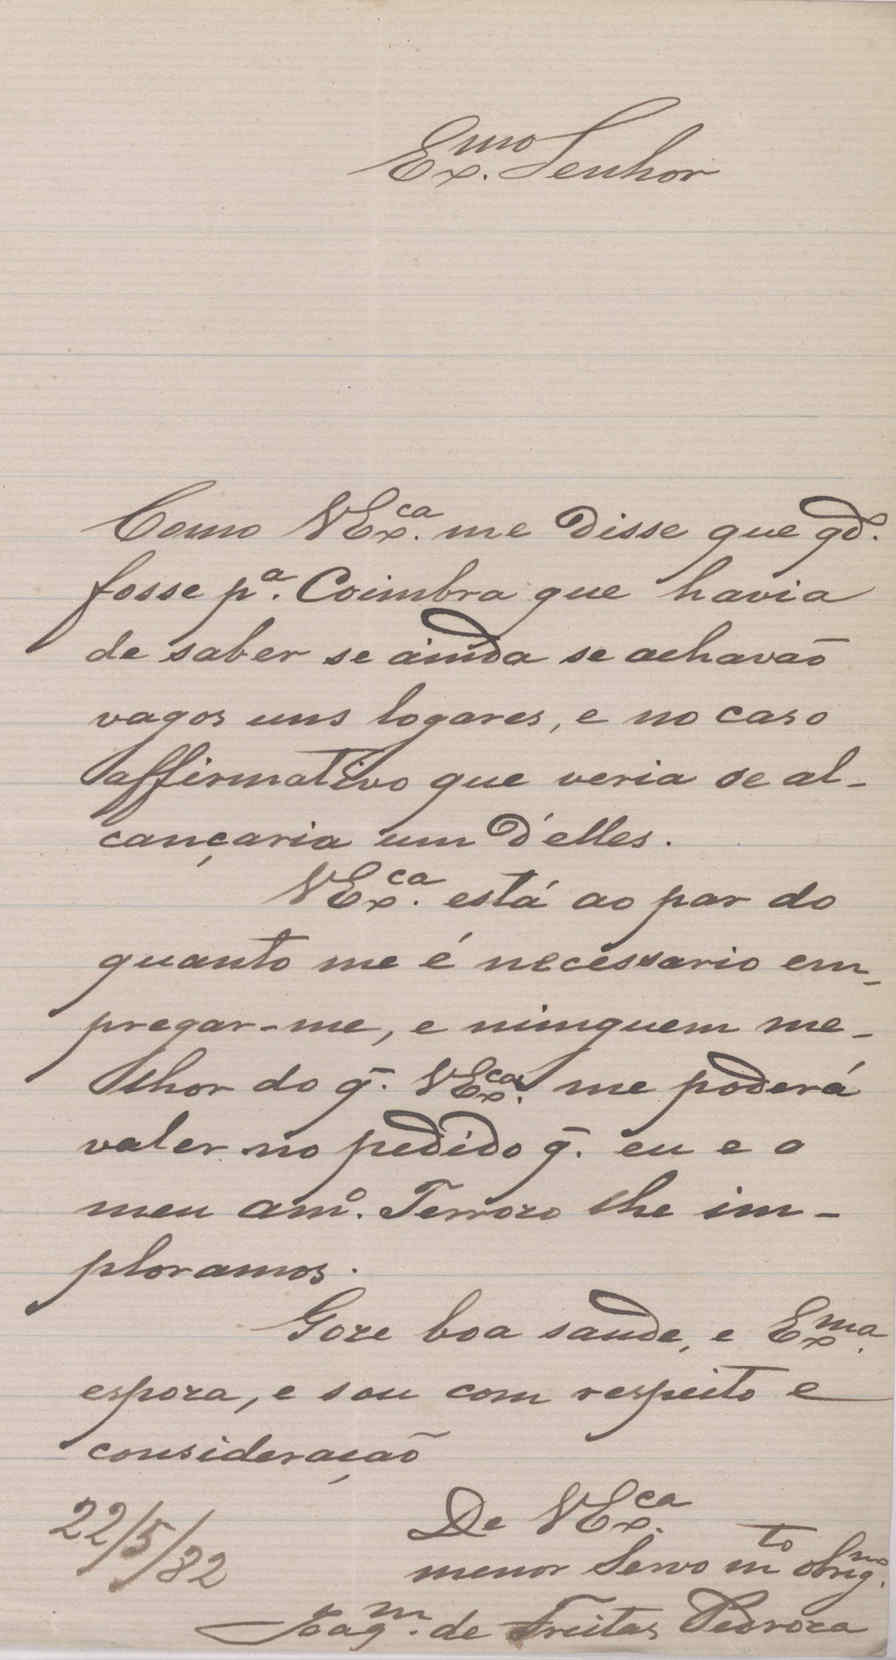 Ex.mo Senhor
Como V Ex.ca me disse que qd.
fosse p.a Coimbra que havia
de saber se ainda se achavaõ
vagos uns logares, e no caso
affirmativo que veria se al-
cançaria um d'elles.
V Ex.ca está ao par do
quanto me é necessario em-
pregar-me, e nimguem me-
lhor do q̃. V Ex.ca me poderá
valer no pedido q̃. eu e o
meu am.o Terrozo lhe im-
ploramos.
Goze boa saude, e Ex.ma
espoza, e sou com respeito e
consideraçaõ
De V Ex.ca
22/5/82
menor Servo m.to obrig.mo
Joaq.m de Freitas Pedroza